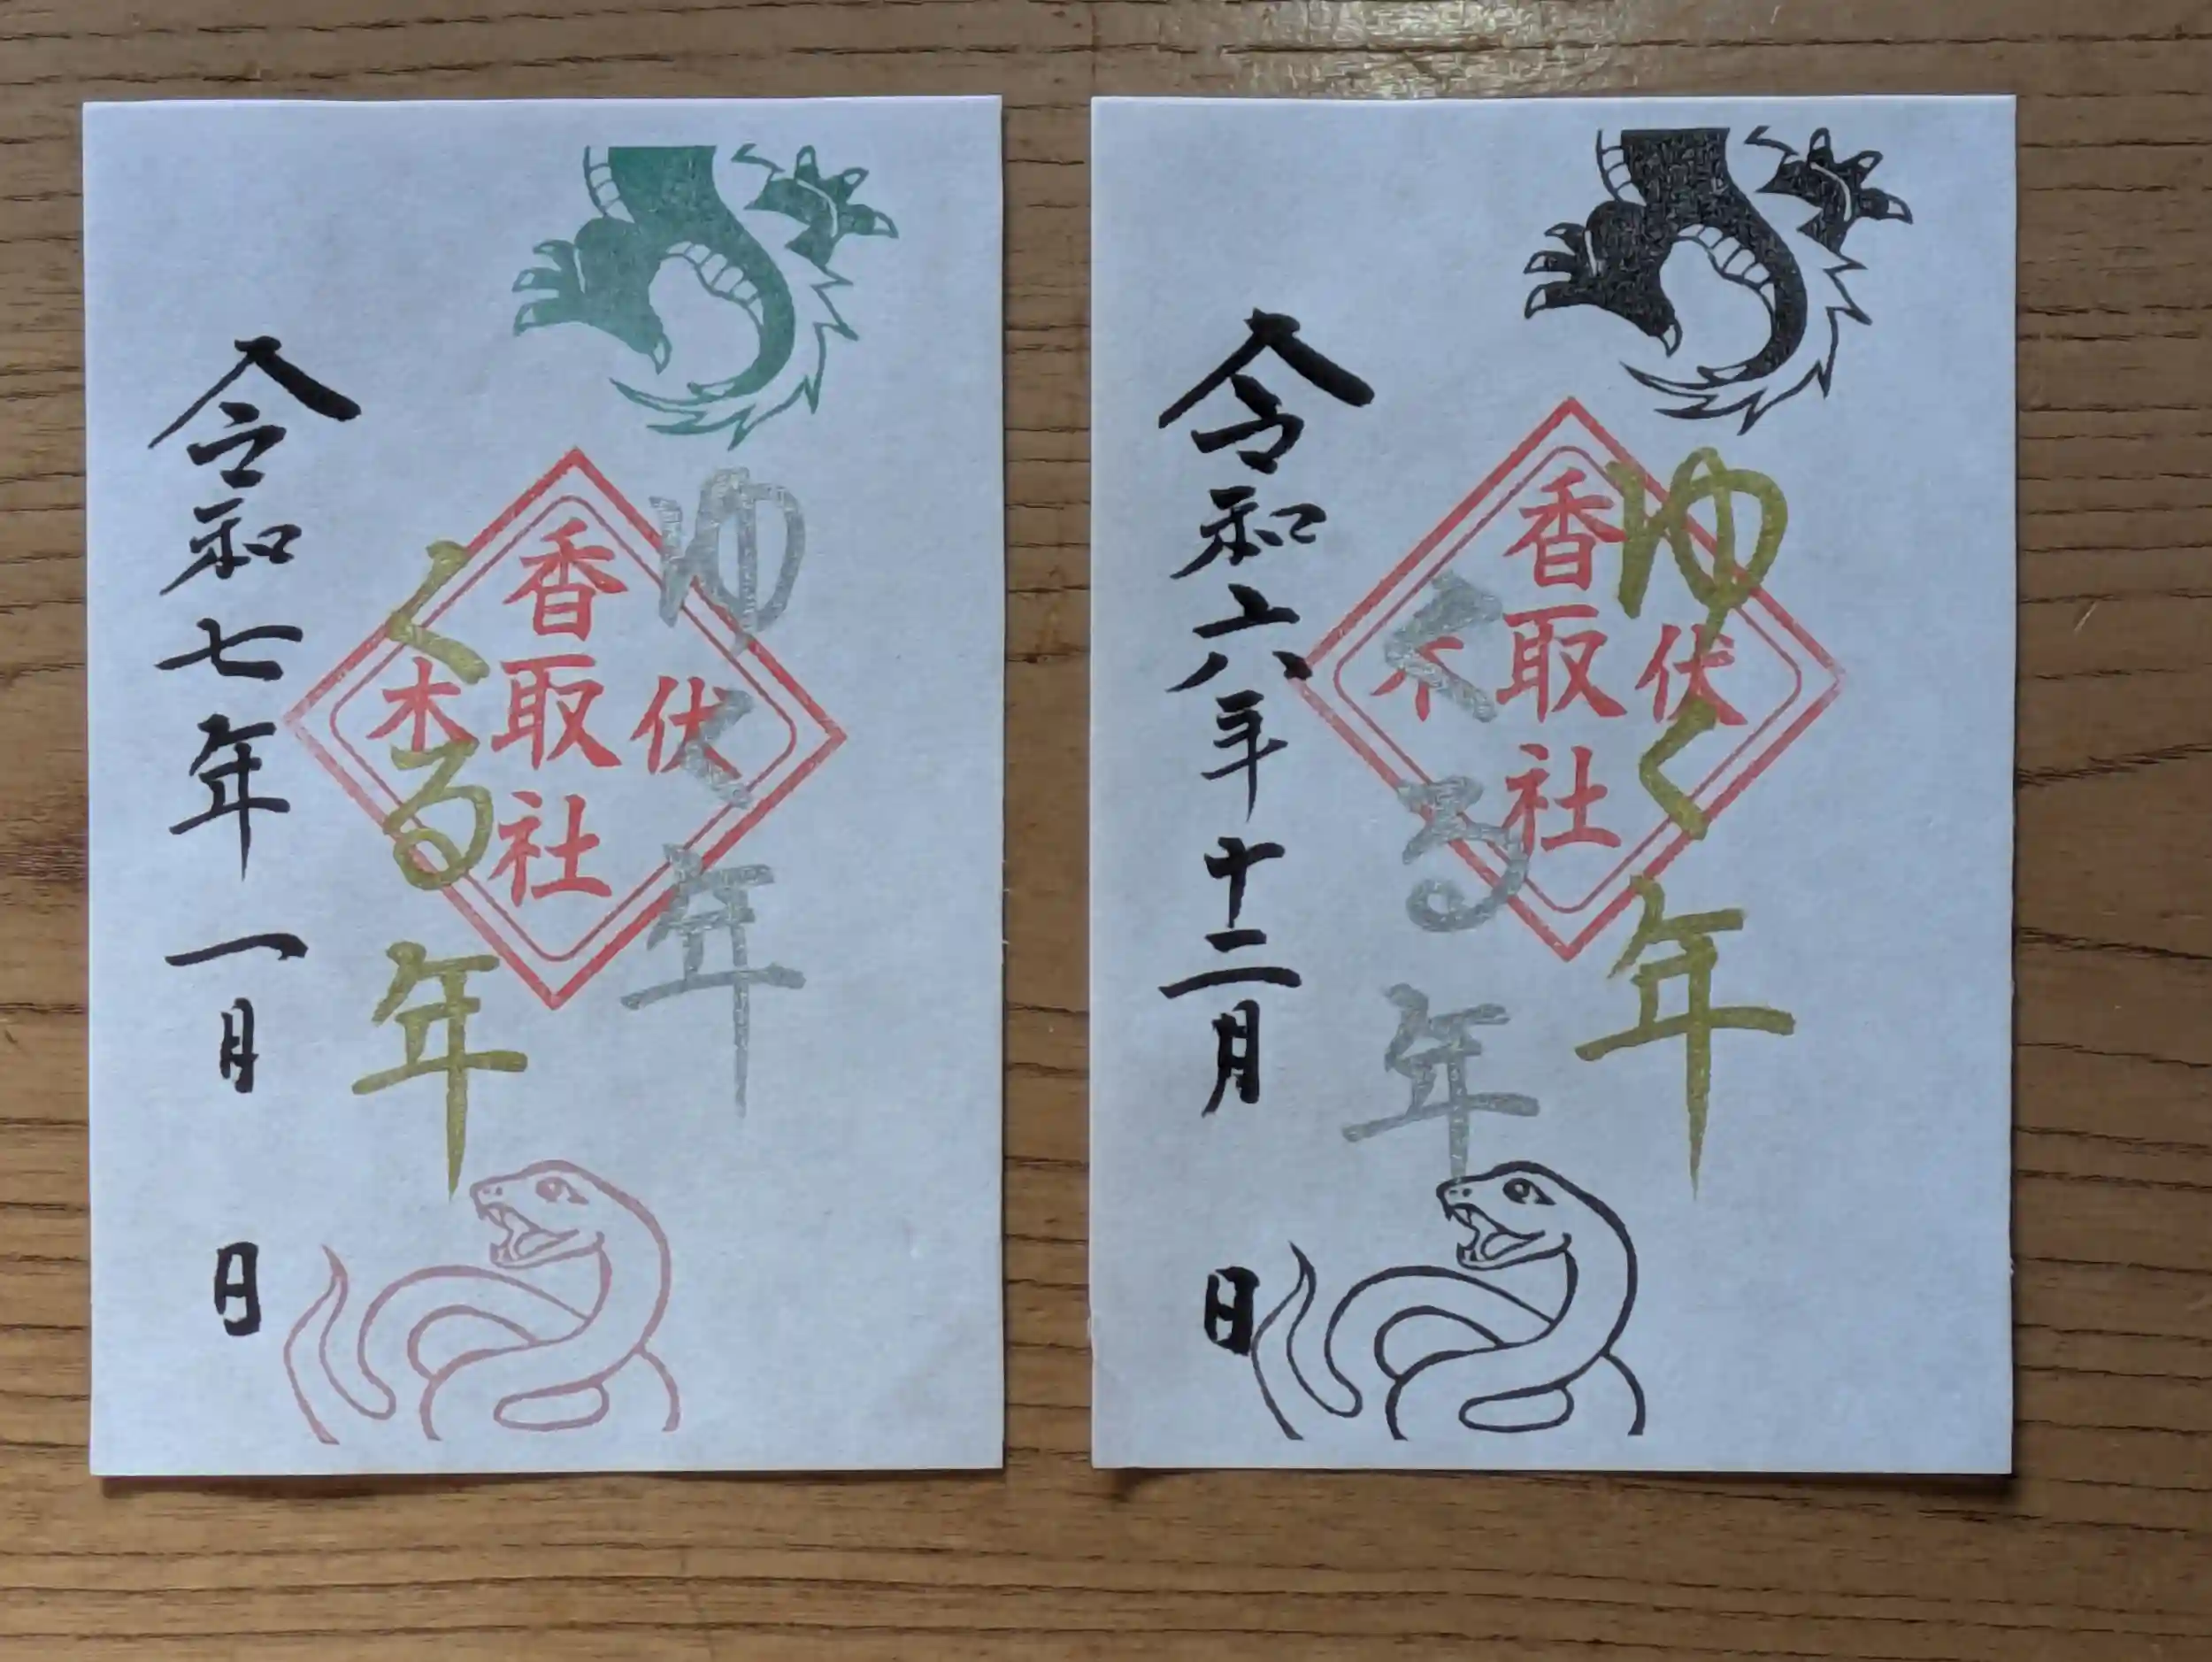 ゆく年
くる年
伏木
香取社
令和七年一月 日
ゆく年
くる年
伏木
香取社
令和六年十二月 日